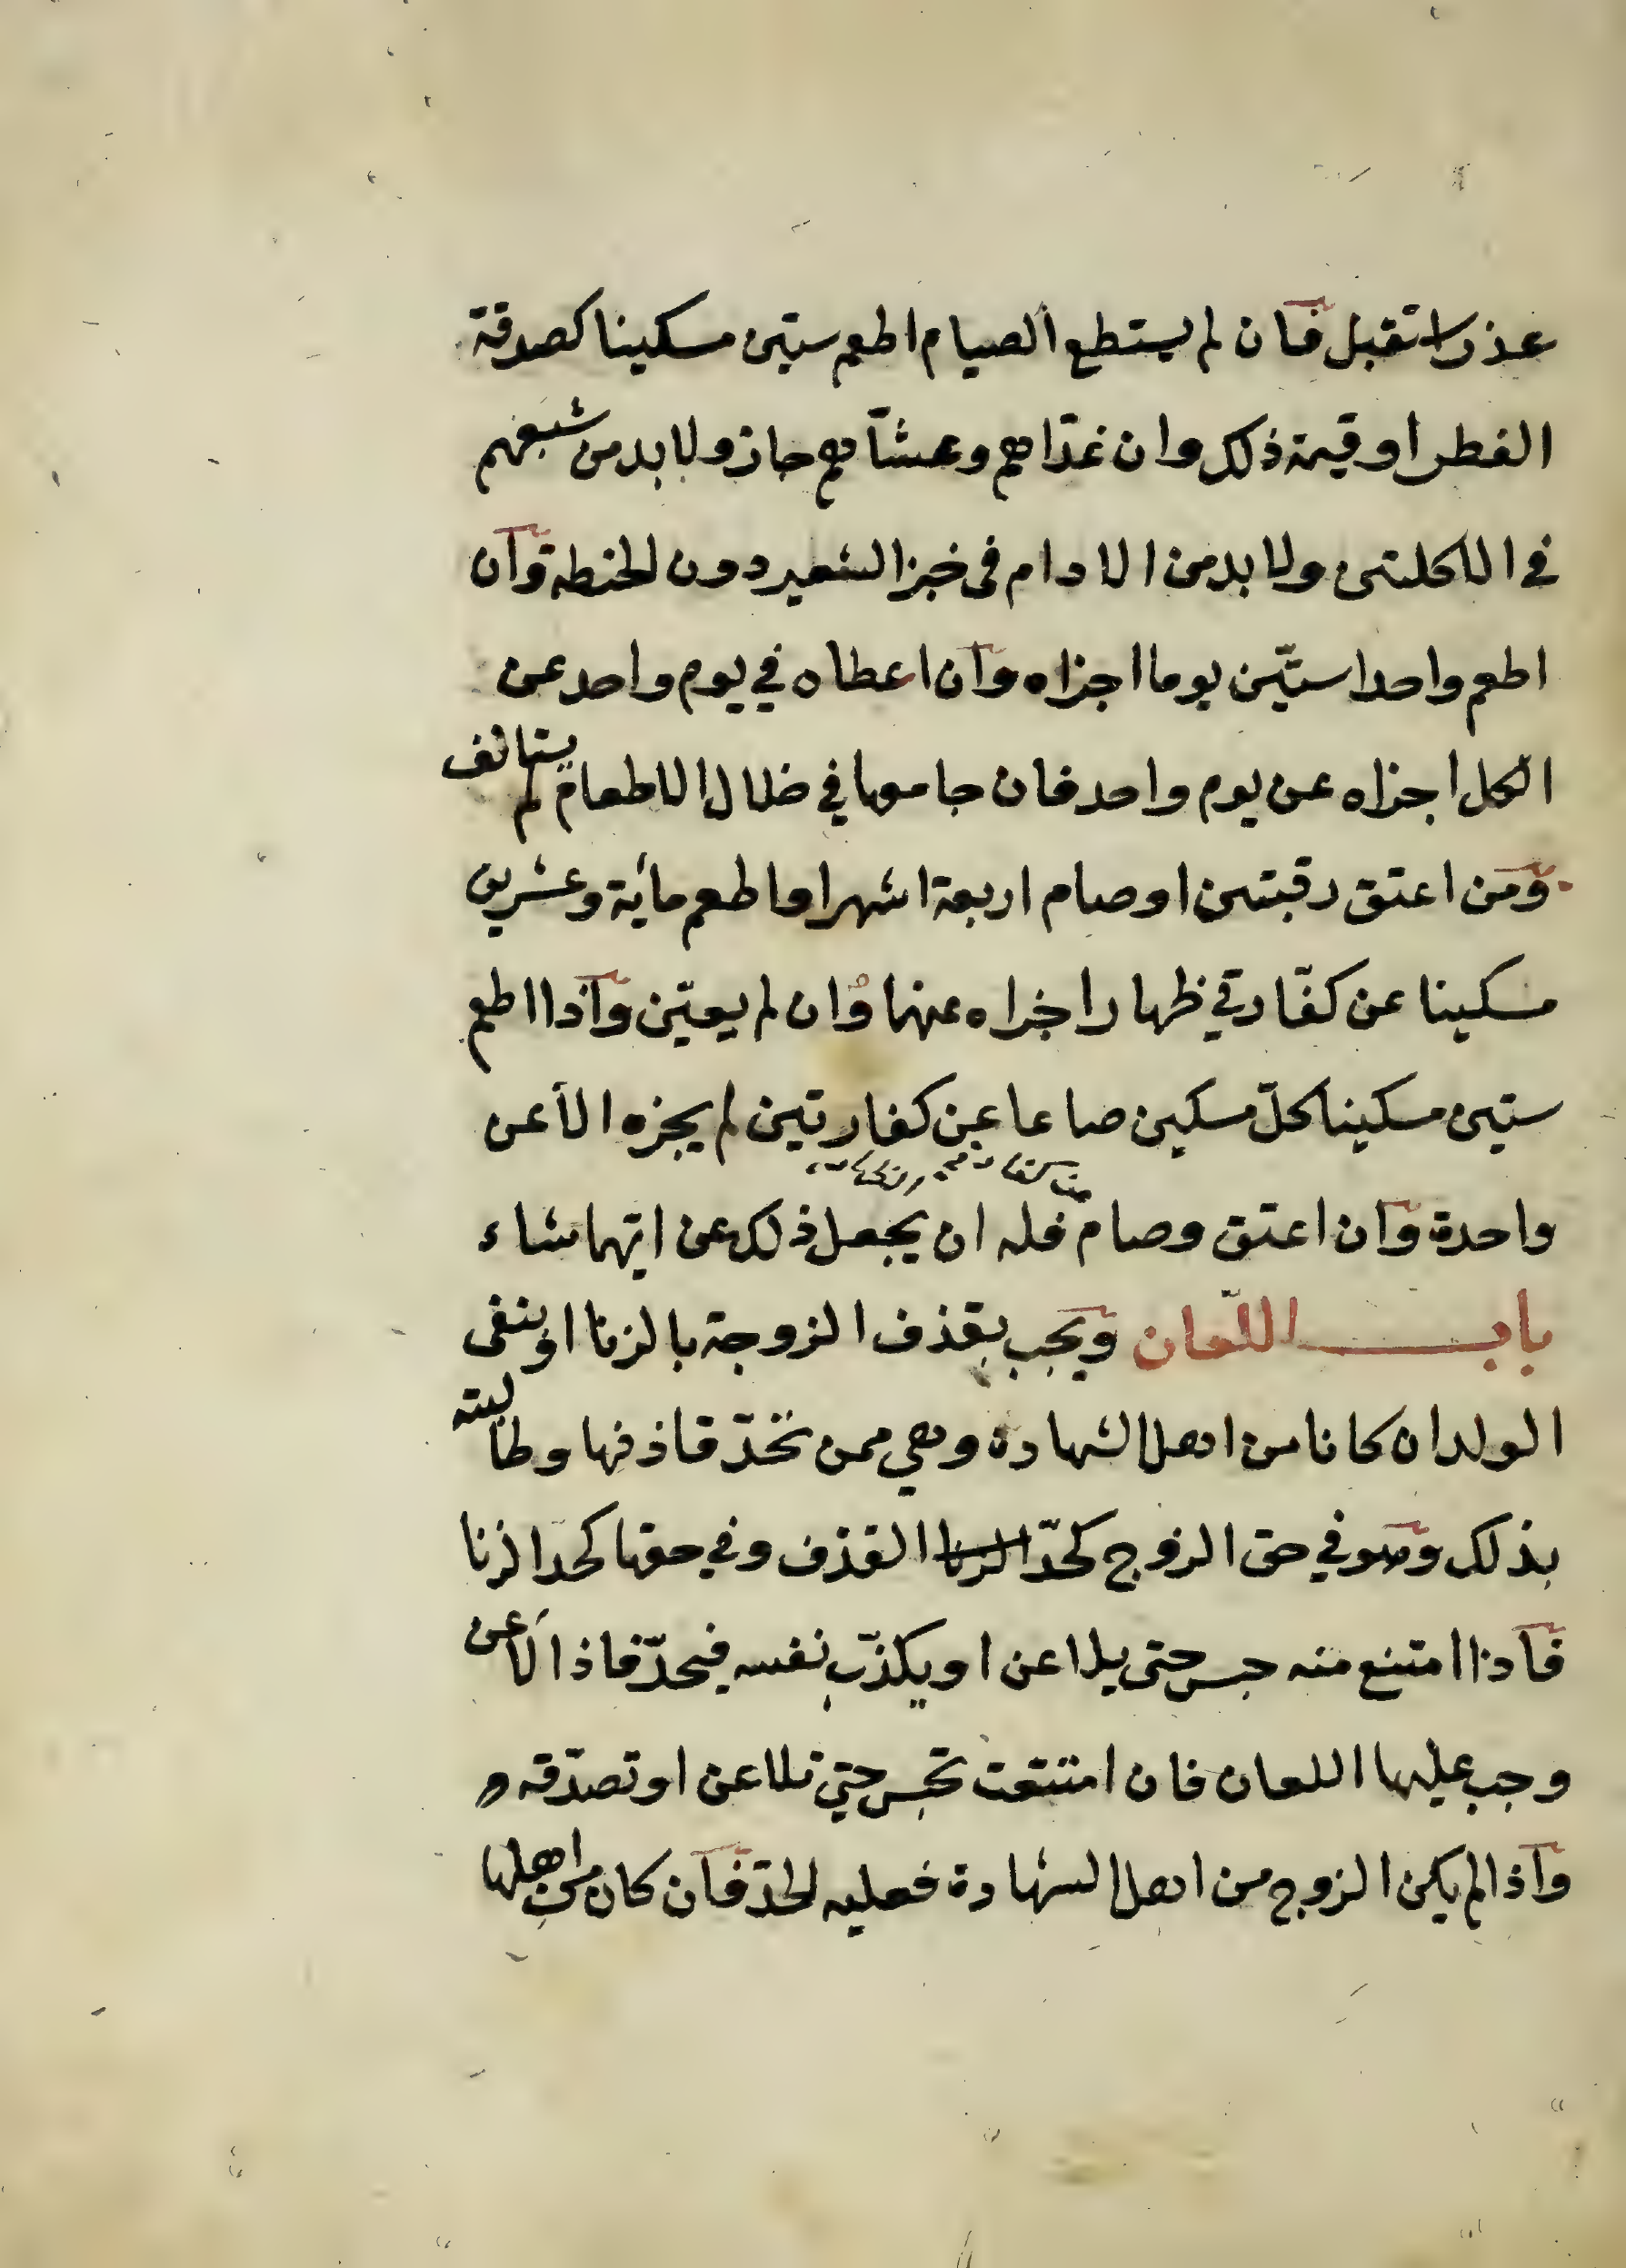 عذر استقبل فان لم يستطع الصيام اطعم ستين مسكينا كصدقة
الفطر او قيمة ذلك وان غدّاهم وعشّاهم جاز ولا بد من شبعهم
في الاكلتين ولا بد من الادام في خبز الشعير دون الحنطة وان
اطعم واحدا ستّين يوما اجزاه وان اعطاه في يوم واحد عن
الكل اجزاه عن يوم واحد فان جامعها في خلال الاطعام لم يستانف
ومن اعتق رقبتين او صام اربعة اشهر او اطعم مائة وعشرين
مسكينا عن كفّارتي ظهار اجزاه عنهما وان لم يعيّن واذا اطعم
ستين مسكينا كلّ مسكين صاعا عن كفارتين لم يجزه الا عن
واحدة وان اعتق وصام فله ان يجعل ذلك عن ايّهما شاء
باب اللّعان ويجب بقذف الزوجة بالزنا او بنفى
الولد ان كانا من اهل الشهادة وهي ممن يحدّ قاذفها وطالبته
بذلك وهو في حق الزوج كحدّ الزنا القذف وفي حقها كحد الزنا
فاذا امتنع منه حبس حتى يلاعن او يكذّب نفسه فيحدّ فاذا لاعن
وجب عليها اللعان فان امتنعت تحبس حتي تلاعن او تصدّقه و
واذا لم يكن الزوج من اهل الشهادة فعليه الحدّ فان كان من اهلها